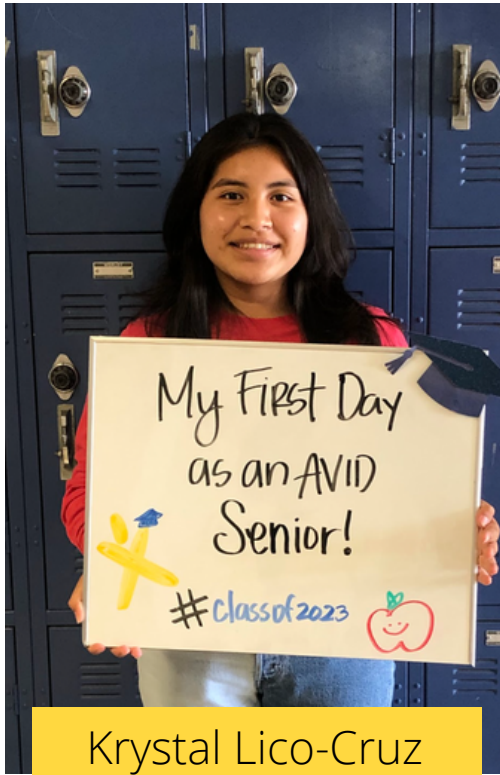 My First Day
as an AVID
Senior!
#classof2023
Krystal Lico-Cruz